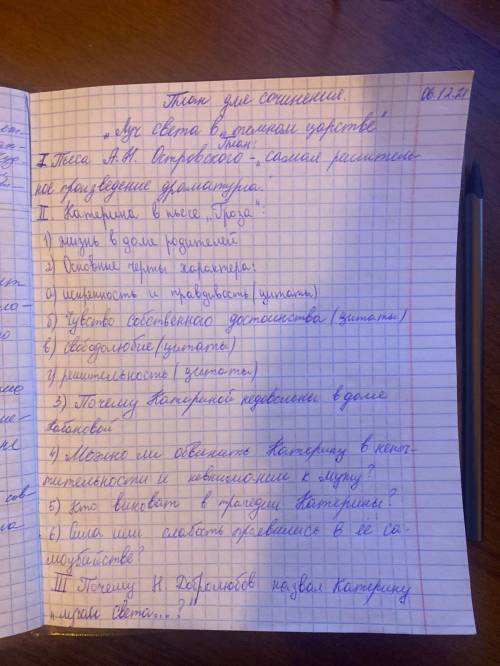 План для сочинения. 06.12.21
„Луч света в „темном царстве"
План:
I Пьеса А.Н. Островского - „самая решитель-
ное произведение драматурга."
II Катерина в пьесе „Гроза":
1) жизнь в доме родителей
2) Основные черты характера:
а) искренность и правдивость (цитаты)
б) Чувство собственного достоинства (цитаты)
в) свободолюбие (цитаты)
г) решительность (цитаты)
3) Почему Катериной недовольны в доме
Кабановой
4) Можно ли обвинить Катерину в непоч-
тительности и невнимании к мужу?
5) Кто виноват в трагедии Катерины?
6) Сила или слабость проявились в её са-
моубийстве?
III Почему Н. Добролюбов назвал Катерину
„лучом света...?"